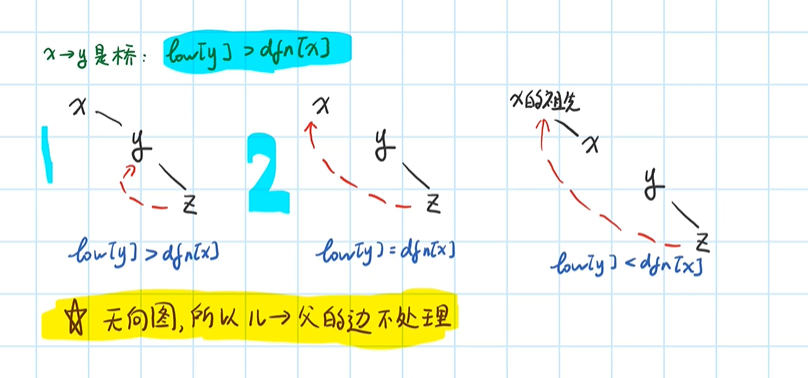 x→y是桥: low[y] > dfn[x]
x
y
z
low[y] > dfn[x]
1
x
y
z
low[y] = dfn[x]
2
x的祖先
x
y
z
low[y] < dfn[x]
☆ 无向图,所以儿→父的边不处理